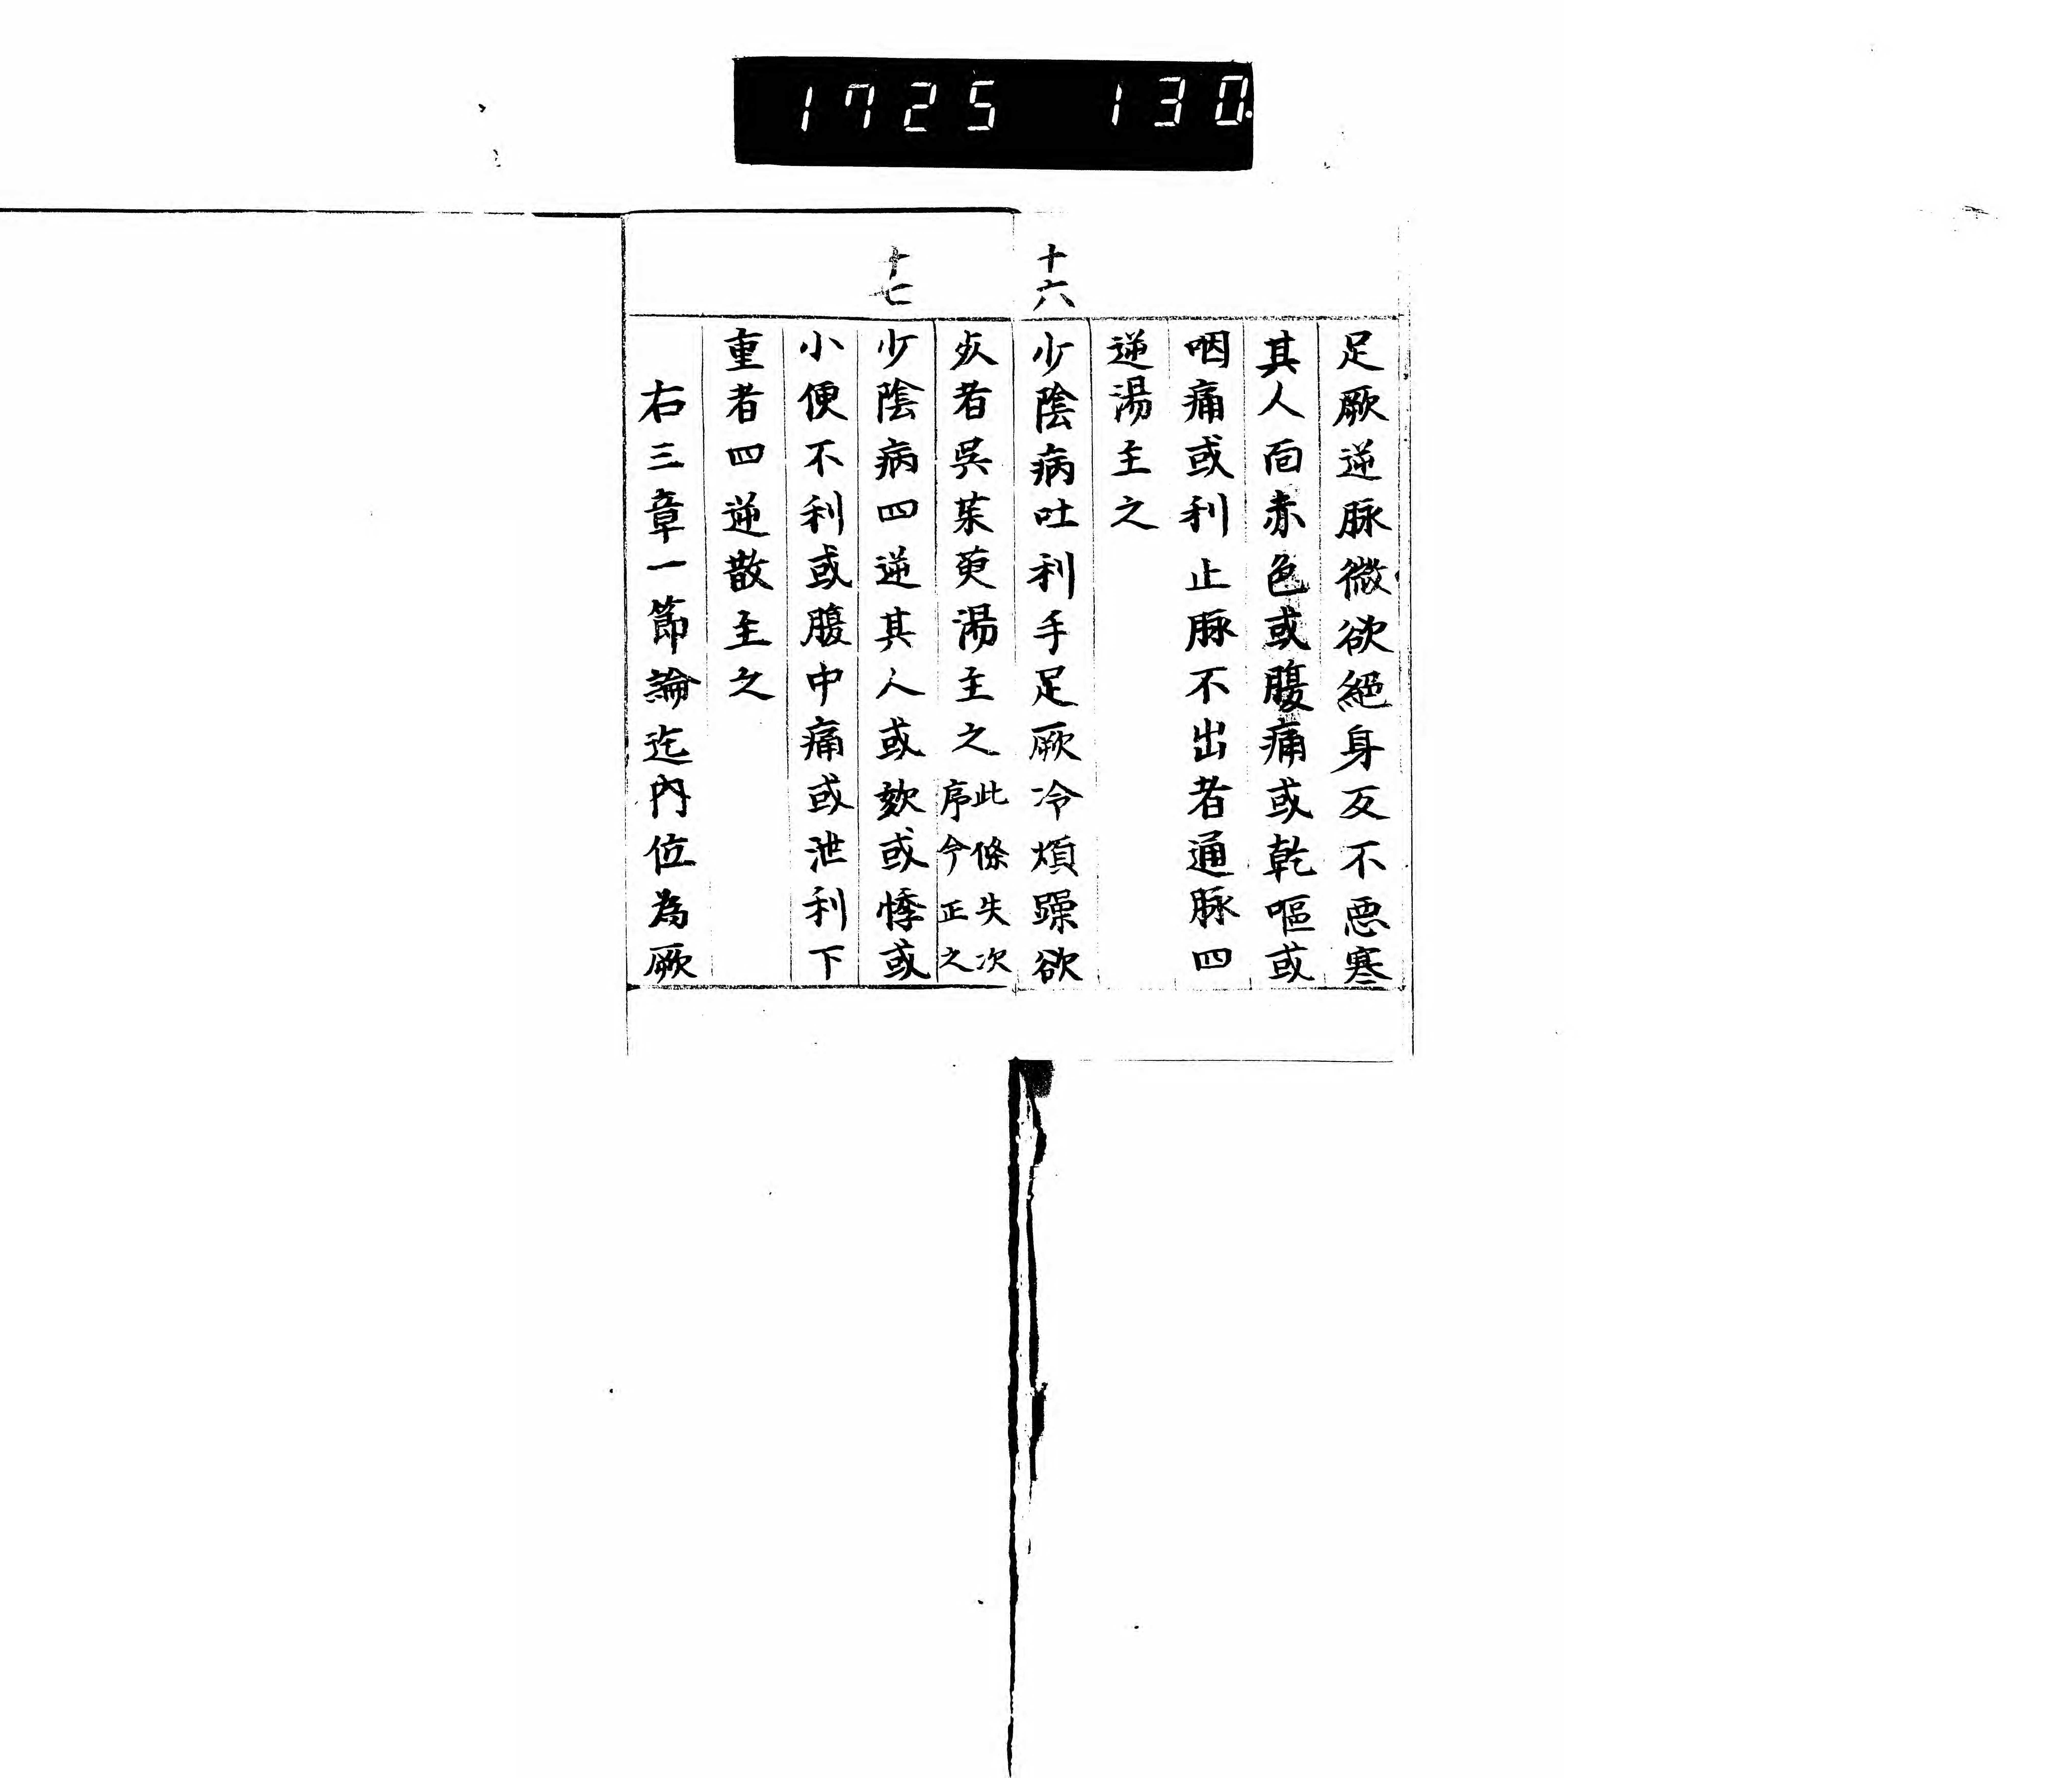 1725 130
足厥逆脉微欲絕身反不惡寒
其人面赤色或腹痛或乾嘔或
咽痛或利止脉不出者通脉四
逆湯主之
十六
少陰病吐利手足厥冷煩躁欲
死者吳茱萸湯主之此條失次序今正之
十七
少陰病四逆其人或欬或悸或
小便不利或腹中痛或泄利下
重者四逆散主之
右三章一節論迄內位為厥